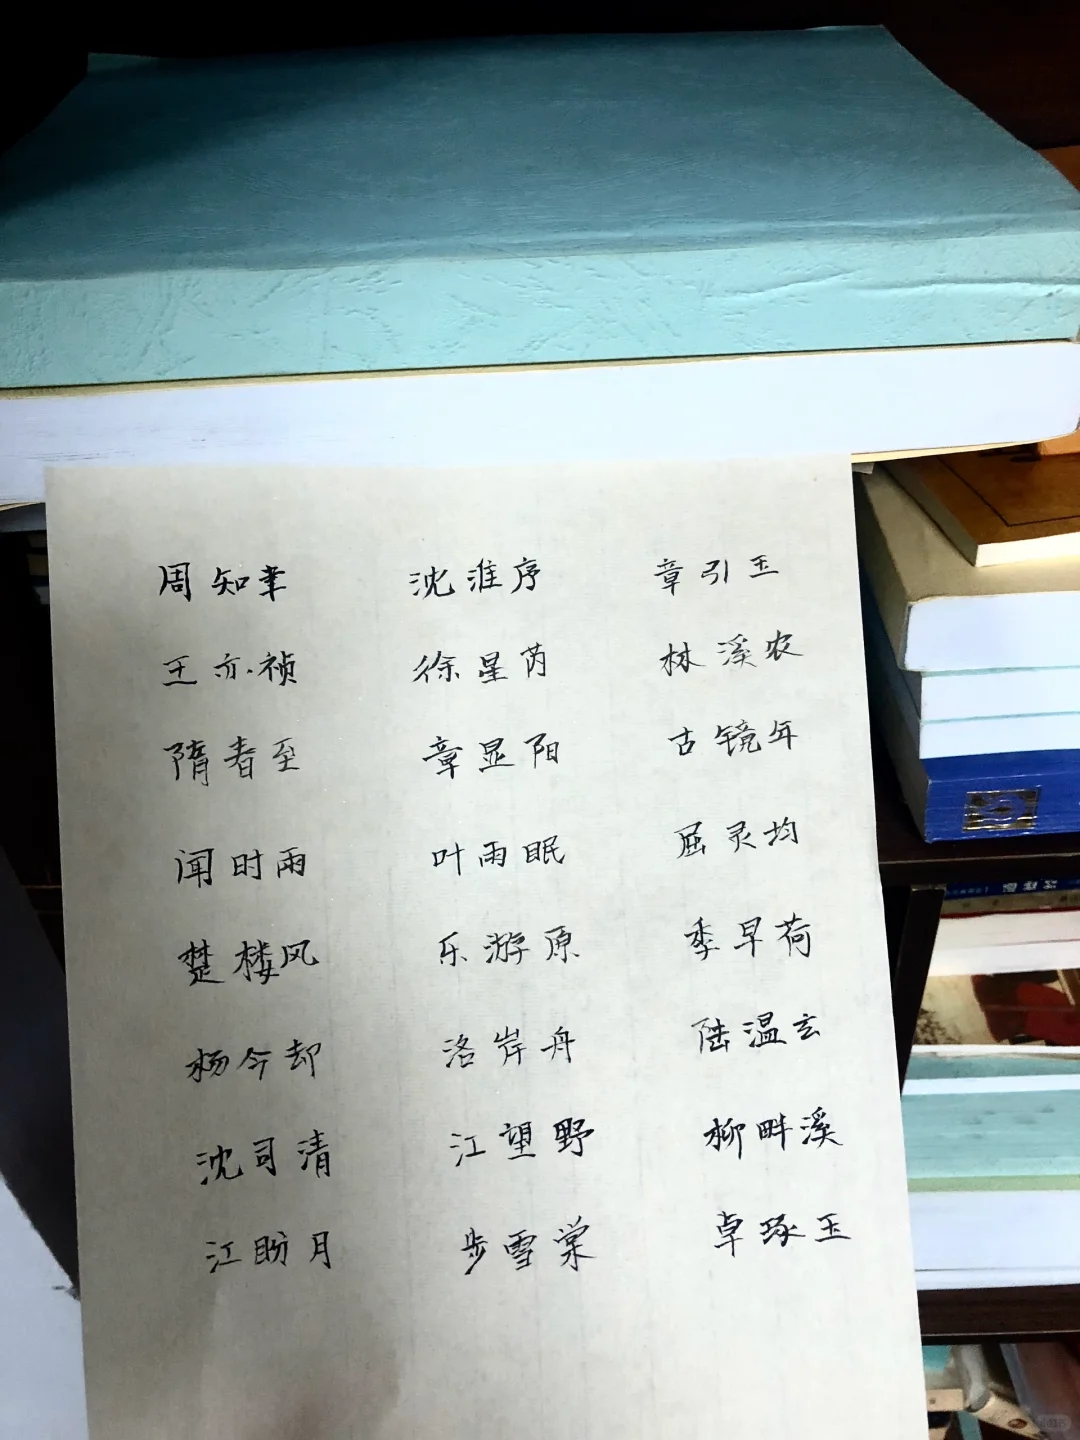 周知聿 沈淮序 章引玉
王亦祯 徐星芮 林溪农
隋春至 章显阳 古镜年
闻时雨 叶雨眠 屈灵均
楚楼风 乐游原 季早荷
杨今却 洛岸舟 陆温玄
沈司清 江望野 柳畔溪
江盼月 步雪棠 卓琢玉